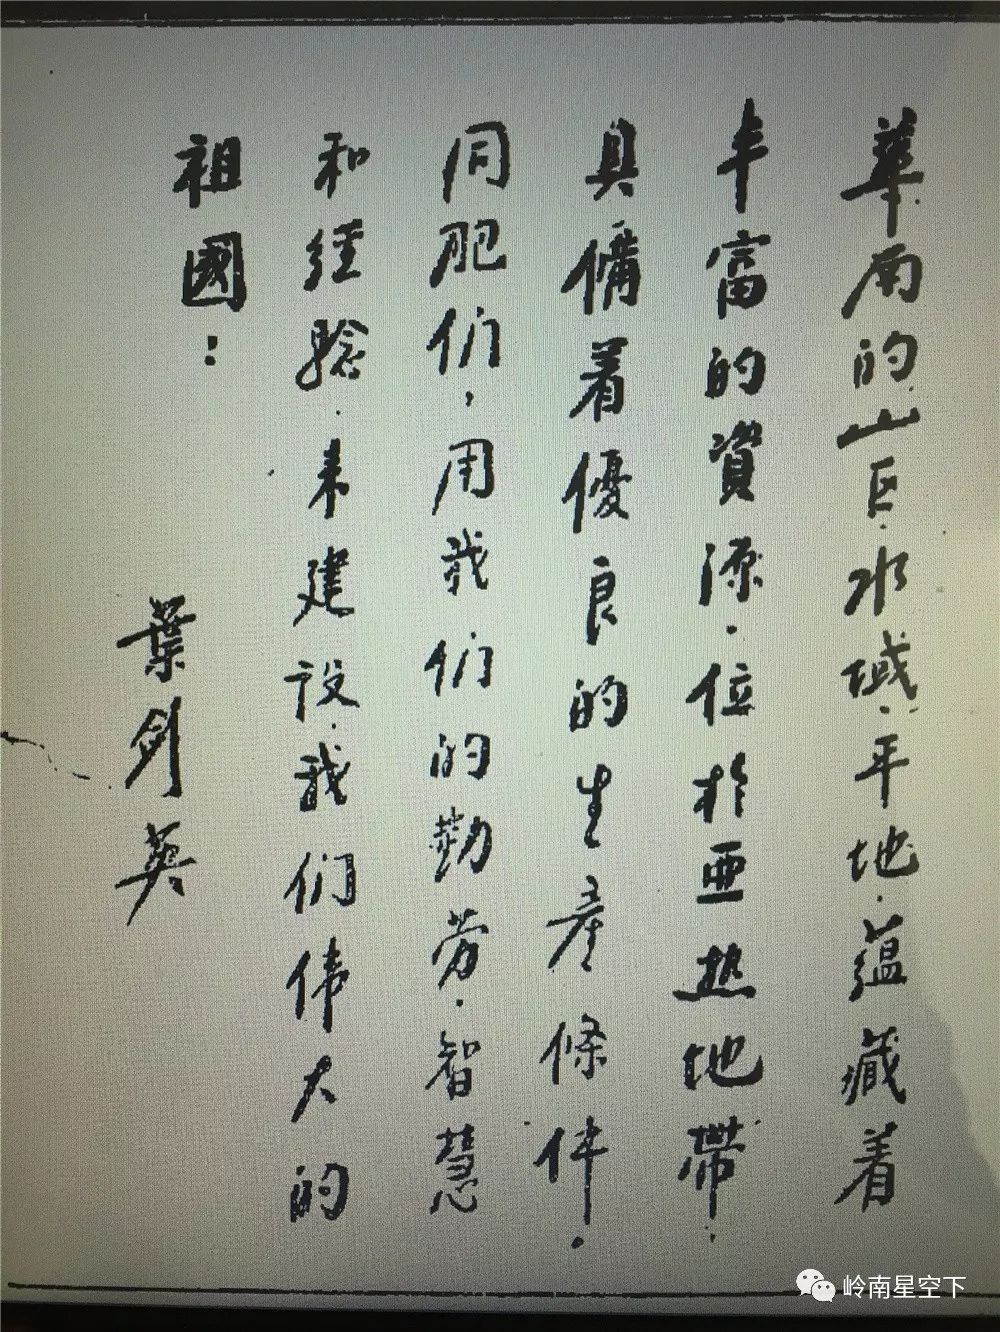 華南的山巨.水域.平地.蕴藏着
丰富的資源.位於亜热地帶.
具備着優良的生產條件.
同胞们，用我们的勤劳.智慧
和经驗.来建設.我们伟大的
祖國：
葉劍英
岭南星空下